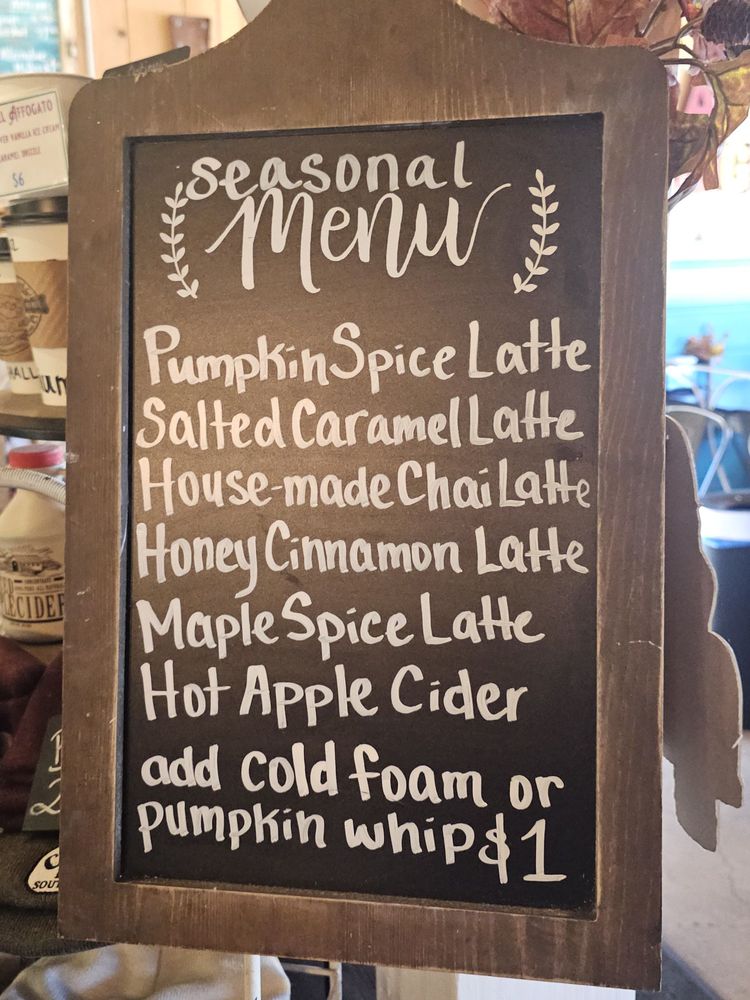 AFFOGATO
VANILLA ICE CREAM
CARAMEL DRIZZLE
$6
seasonal
Menu
Pumpkin Spice Latte
Salted Caramel Latte
House-made Chai Latte
Honey Cinnamon Latte
Maple Spice Latte
Hot Apple Cider
add cold foam or
pumpkin whip $1